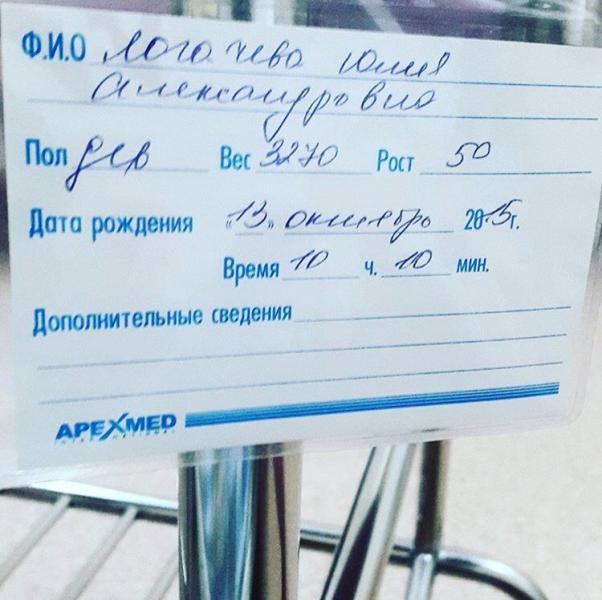 Ф.И.О Логачева Юлия
Александровна
Пол дев Вес 3270 Рост 50
Дата рождения «13» октября 2015г.
Время 10 ч. 10 мин.
Дополнительные сведения
APEXMED